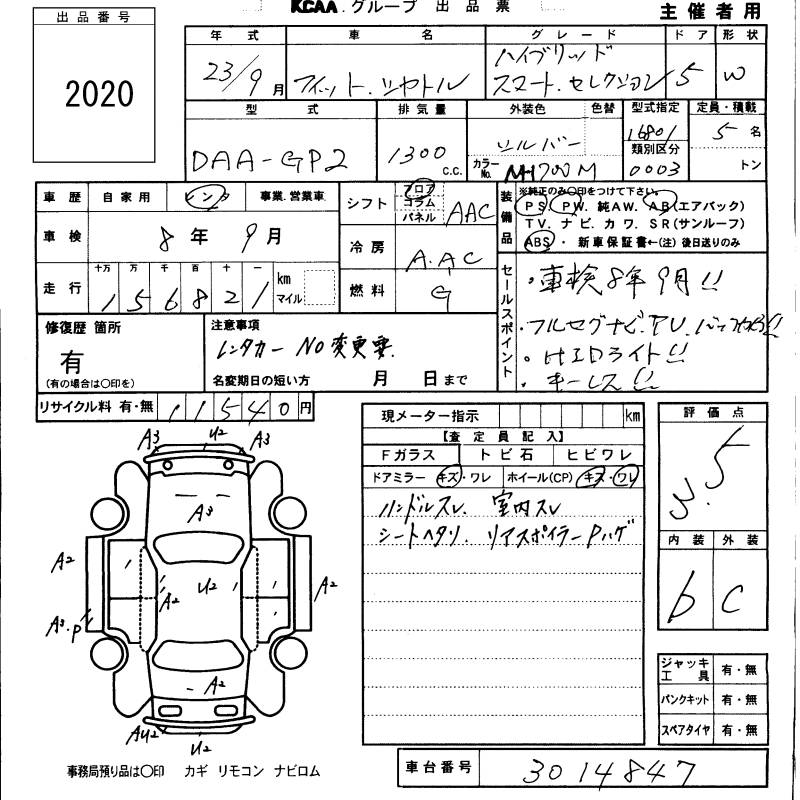 KCAA.グループ 出品票
主催者用
出品番号
2020
年式 車名 グレード ドア 形状
23/9月 フィットシャトル ハイブリッド
スマートセレクション 5 W
型式 排気量 外装色 色替 型式指定 定員・積載
DAA-GP2 1300 C.C. シルバー 16801 5名
類別区分
カラーNo. NH700M 0003 トン
車歴 自家用 レンタ 事業.営業車
シフト フロア コラム パネル AAC
装備品 ※純正のみ〇印をつけて下さい。
PS. PW. 純AW. AB(エアバック)
TV. ナビ. カワ. SR(サンルーフ)
ABS・新車保証書←(注)後日送りのみ
車検 8年9月
冷房 A.AC
走行 十万 万 千 百 十 一
156821 km マイル
燃料 G
セールスポイント
・車検8年9月!!
・フルセグナビ.TV.バックカメラ!!
・HIDライト!!
・キーレス!!
修復歴 箇所
有
(有の場合は〇印を)
注意事項
レンタカー NO変更要.
名変期日の短い方 月 日まで
リサイクル料 有・無 11540円
現メーター指示 km
【査定員記入】
Fガラス トビ石 ヒビワレ
ドアミラー キズ・ワレ ホイール(CP) キズ・ワレ
ハンドルスレ. 室内スレ
シートヘタリ. リアスポイラーPハゲ
評価点
3.5
内装 外装
b C
A3 U2 A3
A3
A2 A2 U2 A2
A3.P
A2
AU2 U2
ジャッキ工具 有・無
パンクキット 有・無
スペアタイヤ 有・無
事務局預り品は〇印 カギ リモコン ナビロム
車台番号 3014847